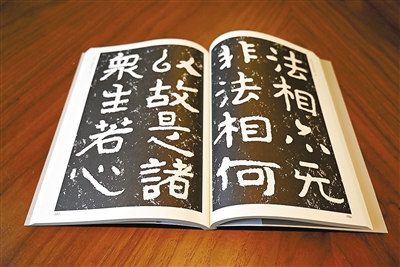 法相亦无
非法相何
以故是諸
衆生若心